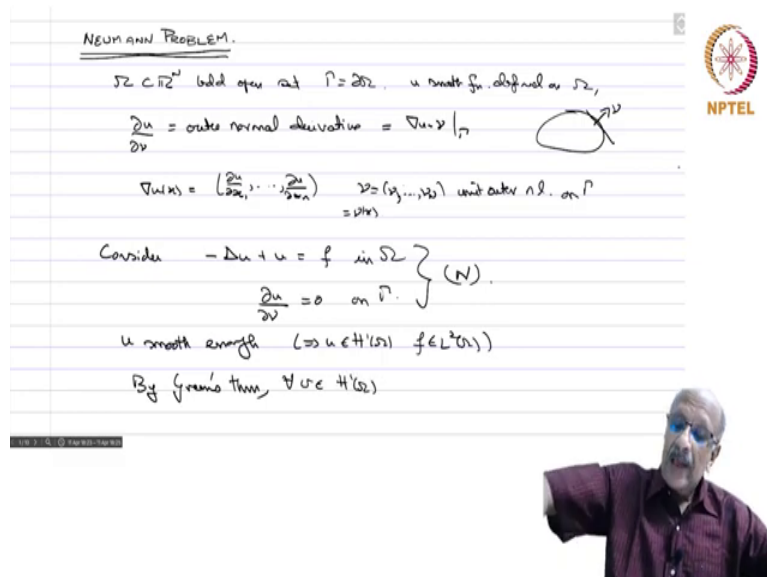 NEUMANN PROBLEM.
Ω ⊂ ℝᴺ bdd open set Γ = ∂Ω. u smooth fn. defined on Ω,
∂u/∂ν = outer normal derivative = ∇u·ν|_Γ
ν
∇u(x) = (∂u/∂x₁, ..., ∂u/∂x_N) ν = (ν₁, ..., ν_N) unit outer nl. on Γ
= ν(x)
Consider -Δu + u = f in Ω
∂u/∂ν = 0 on Γ. } (N).
u smooth enough (⇒ u ∈ H¹(Ω) f ∈ L²(Ω))
By Green's thm, ∀ v ∈ H¹(Ω)
NPTEL